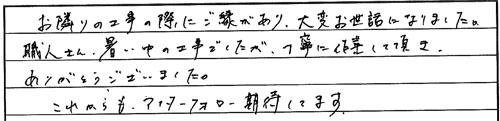 お隣りの工事の際にご縁があり、大変お世話になりました。
職人さん、暑い中の工事でしたが、丁寧に作業して頂き、
ありがとうございました。
これからも、アフターフォロー期待してます